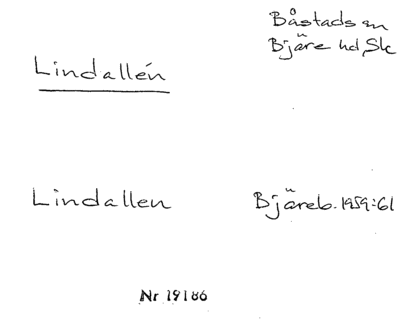 Båstads sn
Bjäre hd, Sk
Lindallén
Lindallen
Bjäreb. 1959:61
Nr 19186